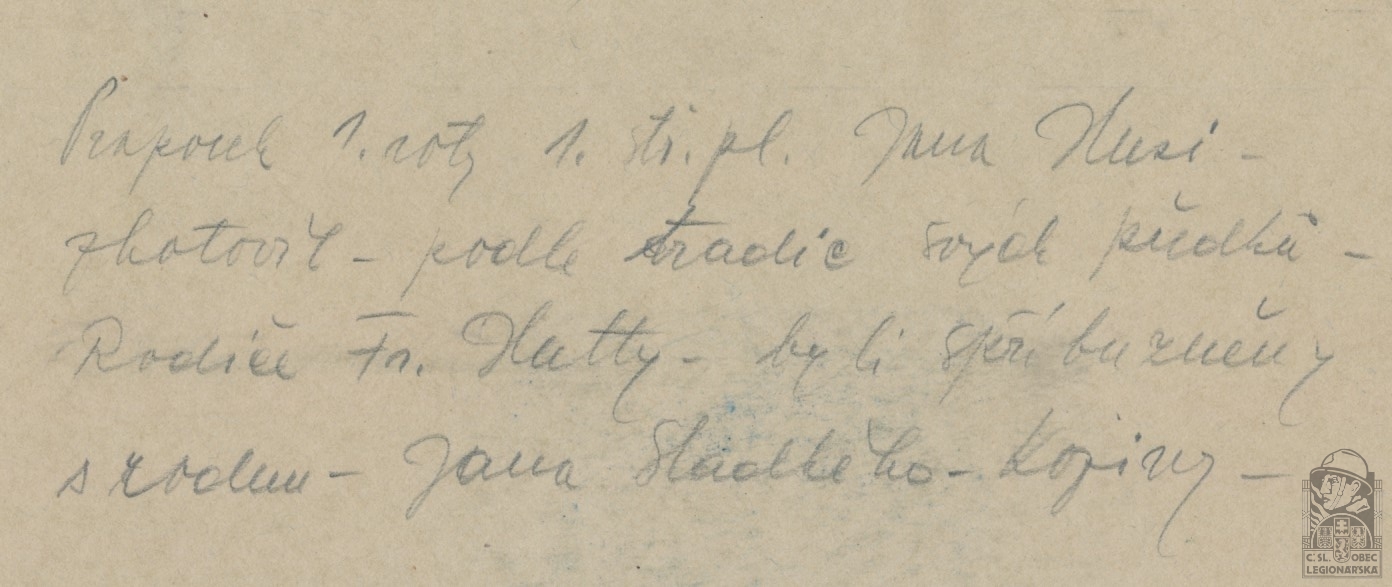 Praporek 1. roty 1. stř. pl. Jana Husi -
zhotovil - podle tradic svých předků -
Rodiče Fr. Hutty - byli spříbuzněny
s rodem - Jana Sladkého - Koziny -
Č.SL. OBEC
LEGIONÁŘSKÁ